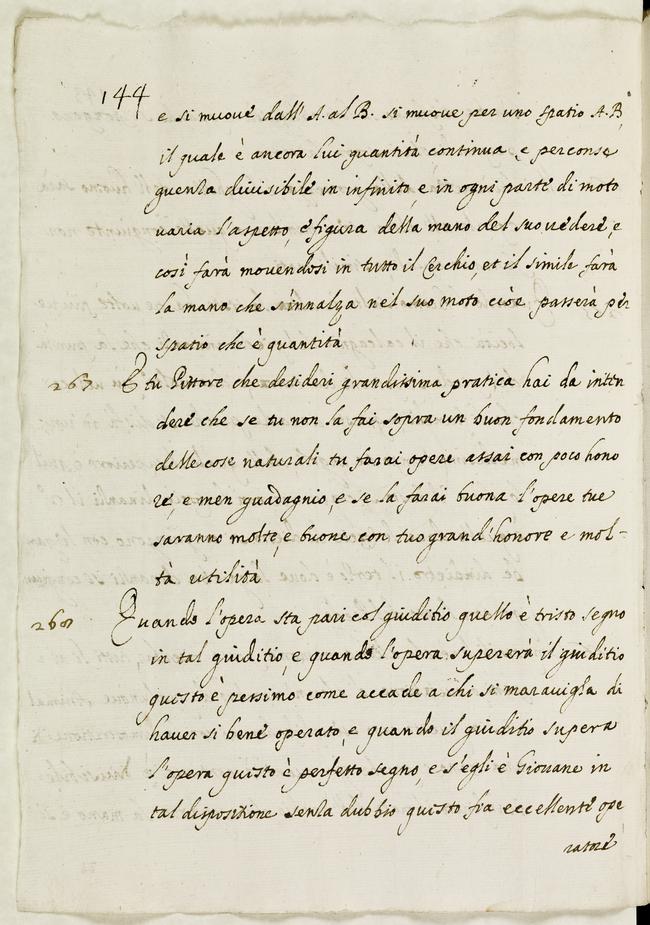 144
e si muove dall' A. al B. si muove per uno spatio A.B,
il quale è ancora lui quantità continua, e perconse
guenza divisibile in infinito, e in ogni parte di moto
varia l'aspetto, e figura della mano del suo vedere, e
così farà movendosi in tutto il Cerchio, et il simile farà
la mano che s'innalza nel suo moto cioè passerà per
spatio che è quantità
267 E tu Pittore che desideri grandissima pratica hai da inten
dere che se tu non la fai sopra un buon fondamento
delle cose naturali tu farai opere assai con poco hono
re, e men guadagnio, e se la farai buona l'opere tue
saranno molte, e buone con tuo grand'honore e mol-
ta utilità
268 Quando l'opera sta pari col giuditio quello è tristo segno
in tal giuditio, e quando l'opera supererà il giuditio
questo è pessimo come accade a chi si maraviglia di
haver si bene operato, e quando il giuditio supera
l'opera questo è perfetto segno, e s'egli è Giovane in
tal dispositione senza dubbio questo fia eccellente ope
ratore